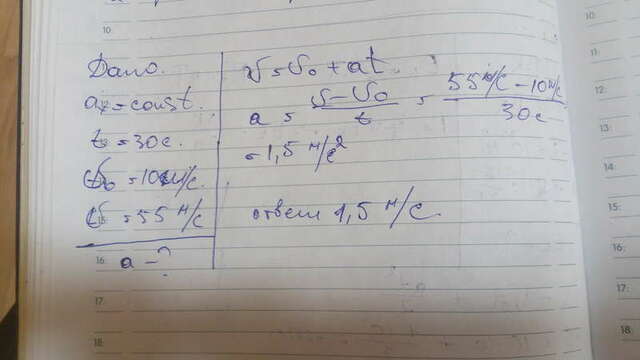 10
Дано.
aₓ = const.
t = 30c.
v₀ = 10 м/с.
v = 55 м/с
a - ?
v = v₀ + at
a = (v - v₀)/t = (55 м/с - 10 м/с)/30c
= 1,5 м/с²
ответ 1,5 м/с.
15
16
17:
18:
10:
11:
12:
13:
14:
15:
16:
17:
18: